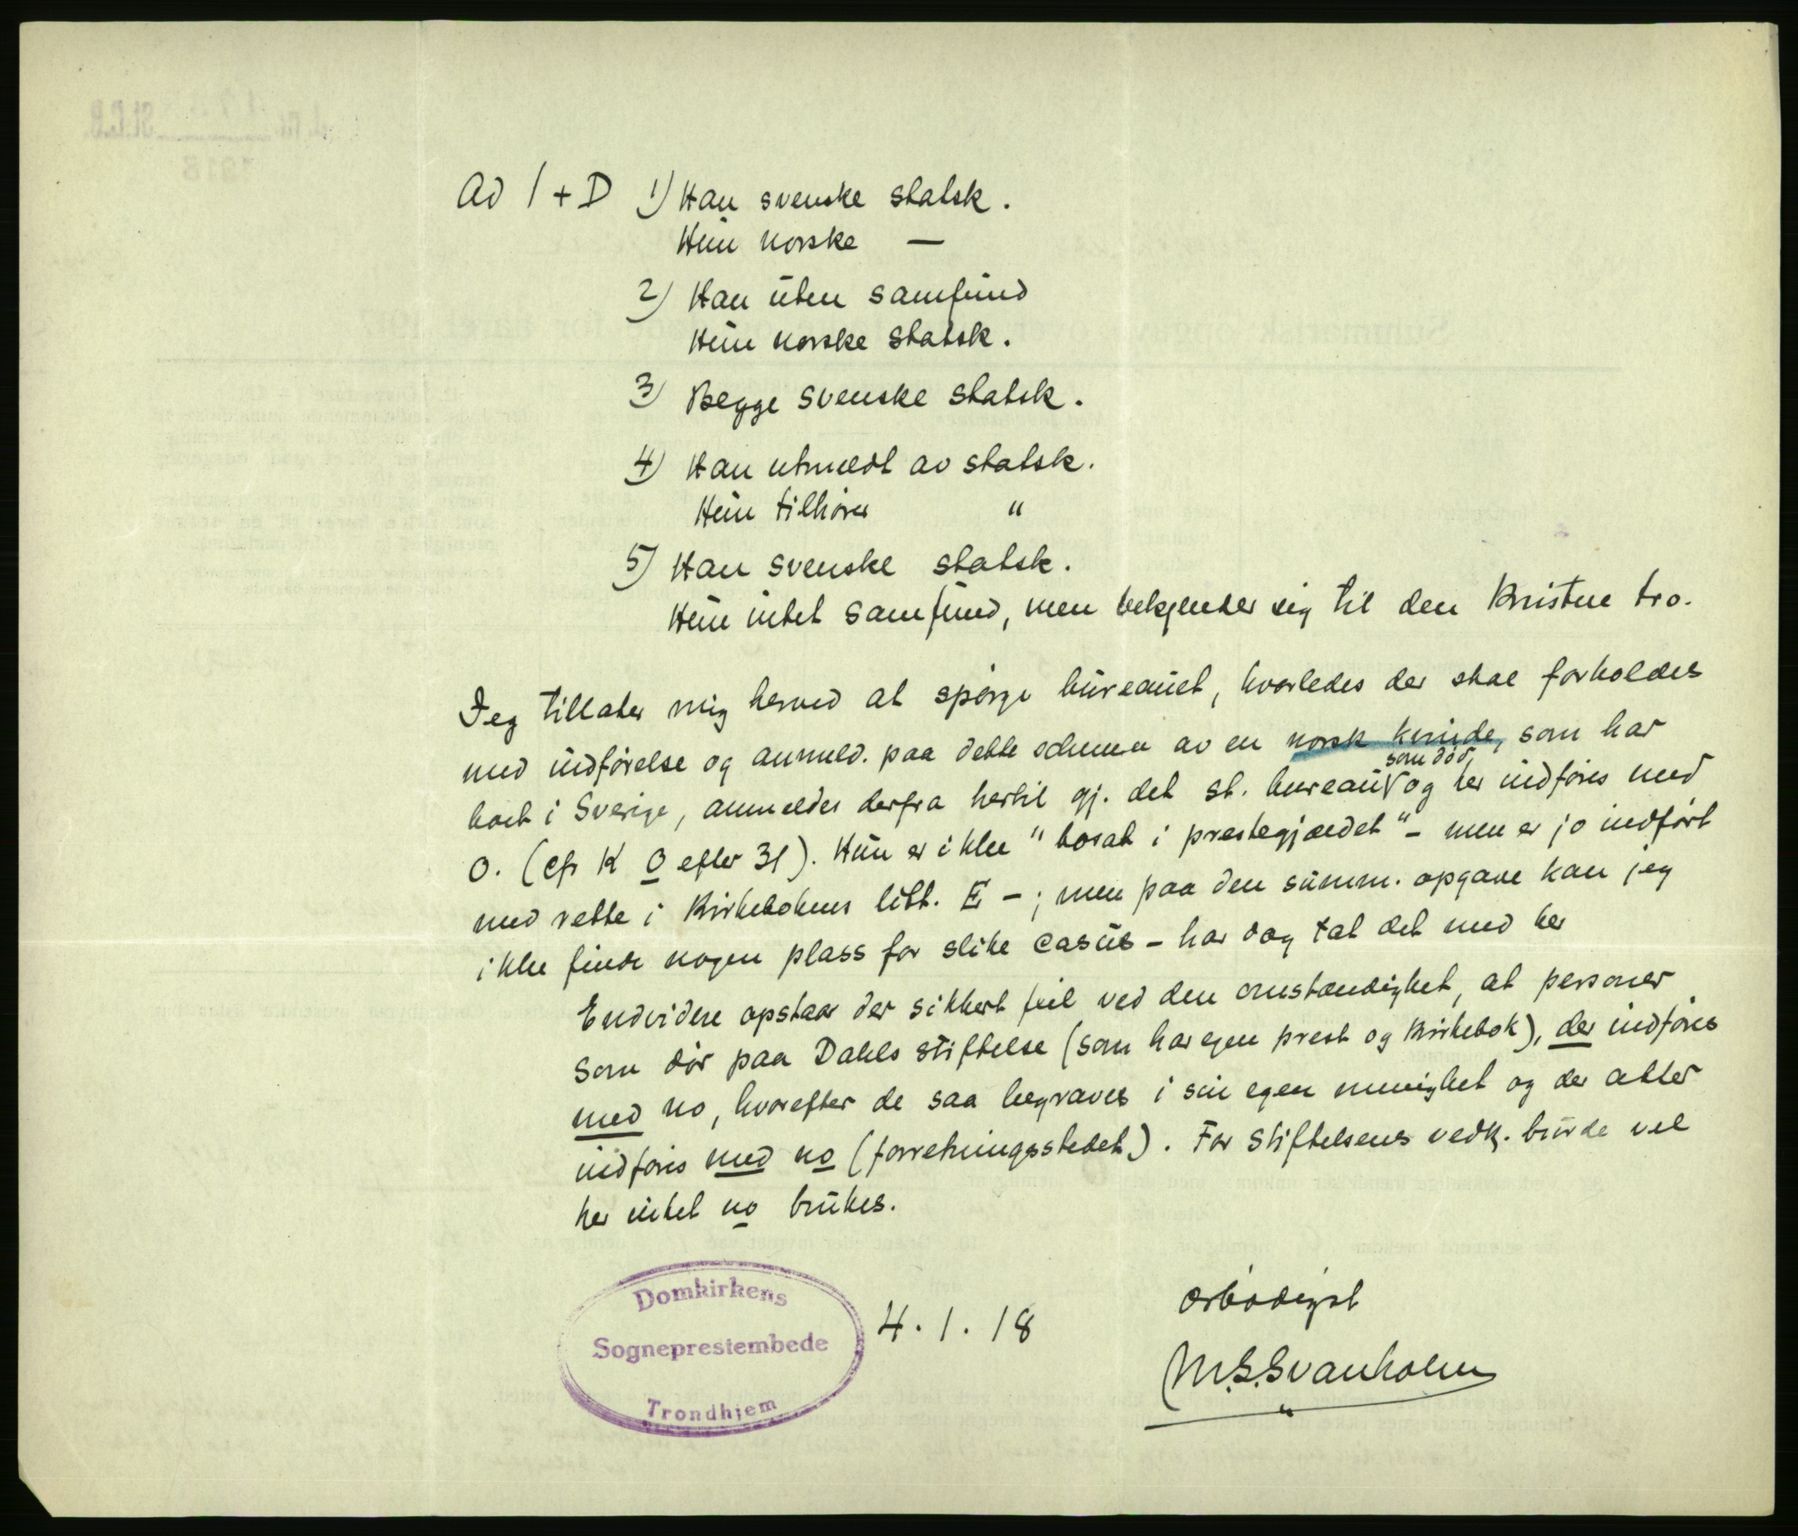 Ad 1 + D 1) Han svenske statsk.
Hun norske —
2) Han uten samfund
Hun norske statsk.
3) Begge svenske statsk.
4) Han utmeldt av statsk.
Hun tilhører "
5) Han svenske statsk.
Hun intet samfund, men bekjender sig til den kristne tro.
Jeg tillater mig herved at spørge bureauet, hvorledes der skal forholdes
med indførelse og anmeld. paa dette schema av en norsk kvinde, som har
som død,
boet i Sverige, anmeldes derfra hertil gj. det st. bureau og her indføres med
0. (cfr K 0 efter 31). Hun er ikke "bosat i prestegjældet" - men er jo indført
med rette i kirkebokens litt. E - ; men paa den summ. opgave kan jeg
ikke finde nogen plass for slike casus - har dog tat det med her
Endvidere opstaar der sikkert feil ved den omstændighet, at personer
som dør paa Dahls stiftelse (som har egen prest og kirkebok), der indføres
med no, hvorefter de saa begraves i sin egen menighet og der atter
indføres med no (forretningsstedet). For stiftelsens vedk. burde vel
her intet no brukes.
Domkirkens
Sogneprestembede
Trondhjem
4. 1. 18
ærbødigst
M.S. Svanholm
J. nr. St.C.B.
1918